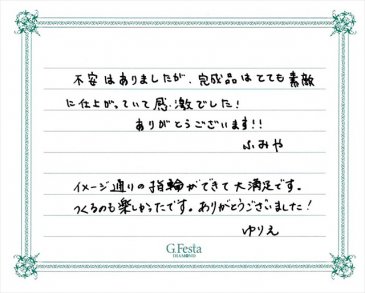 不安はありましたが、完成品はとても素敵
に仕上がっていて感激でした!
ありがとうございます!!
ふみや
イメージ通りの指輪ができて大満足です。
つくるのも楽しかったです。ありがとうございました!
ゆりえ
G.Festa
DIAMOND